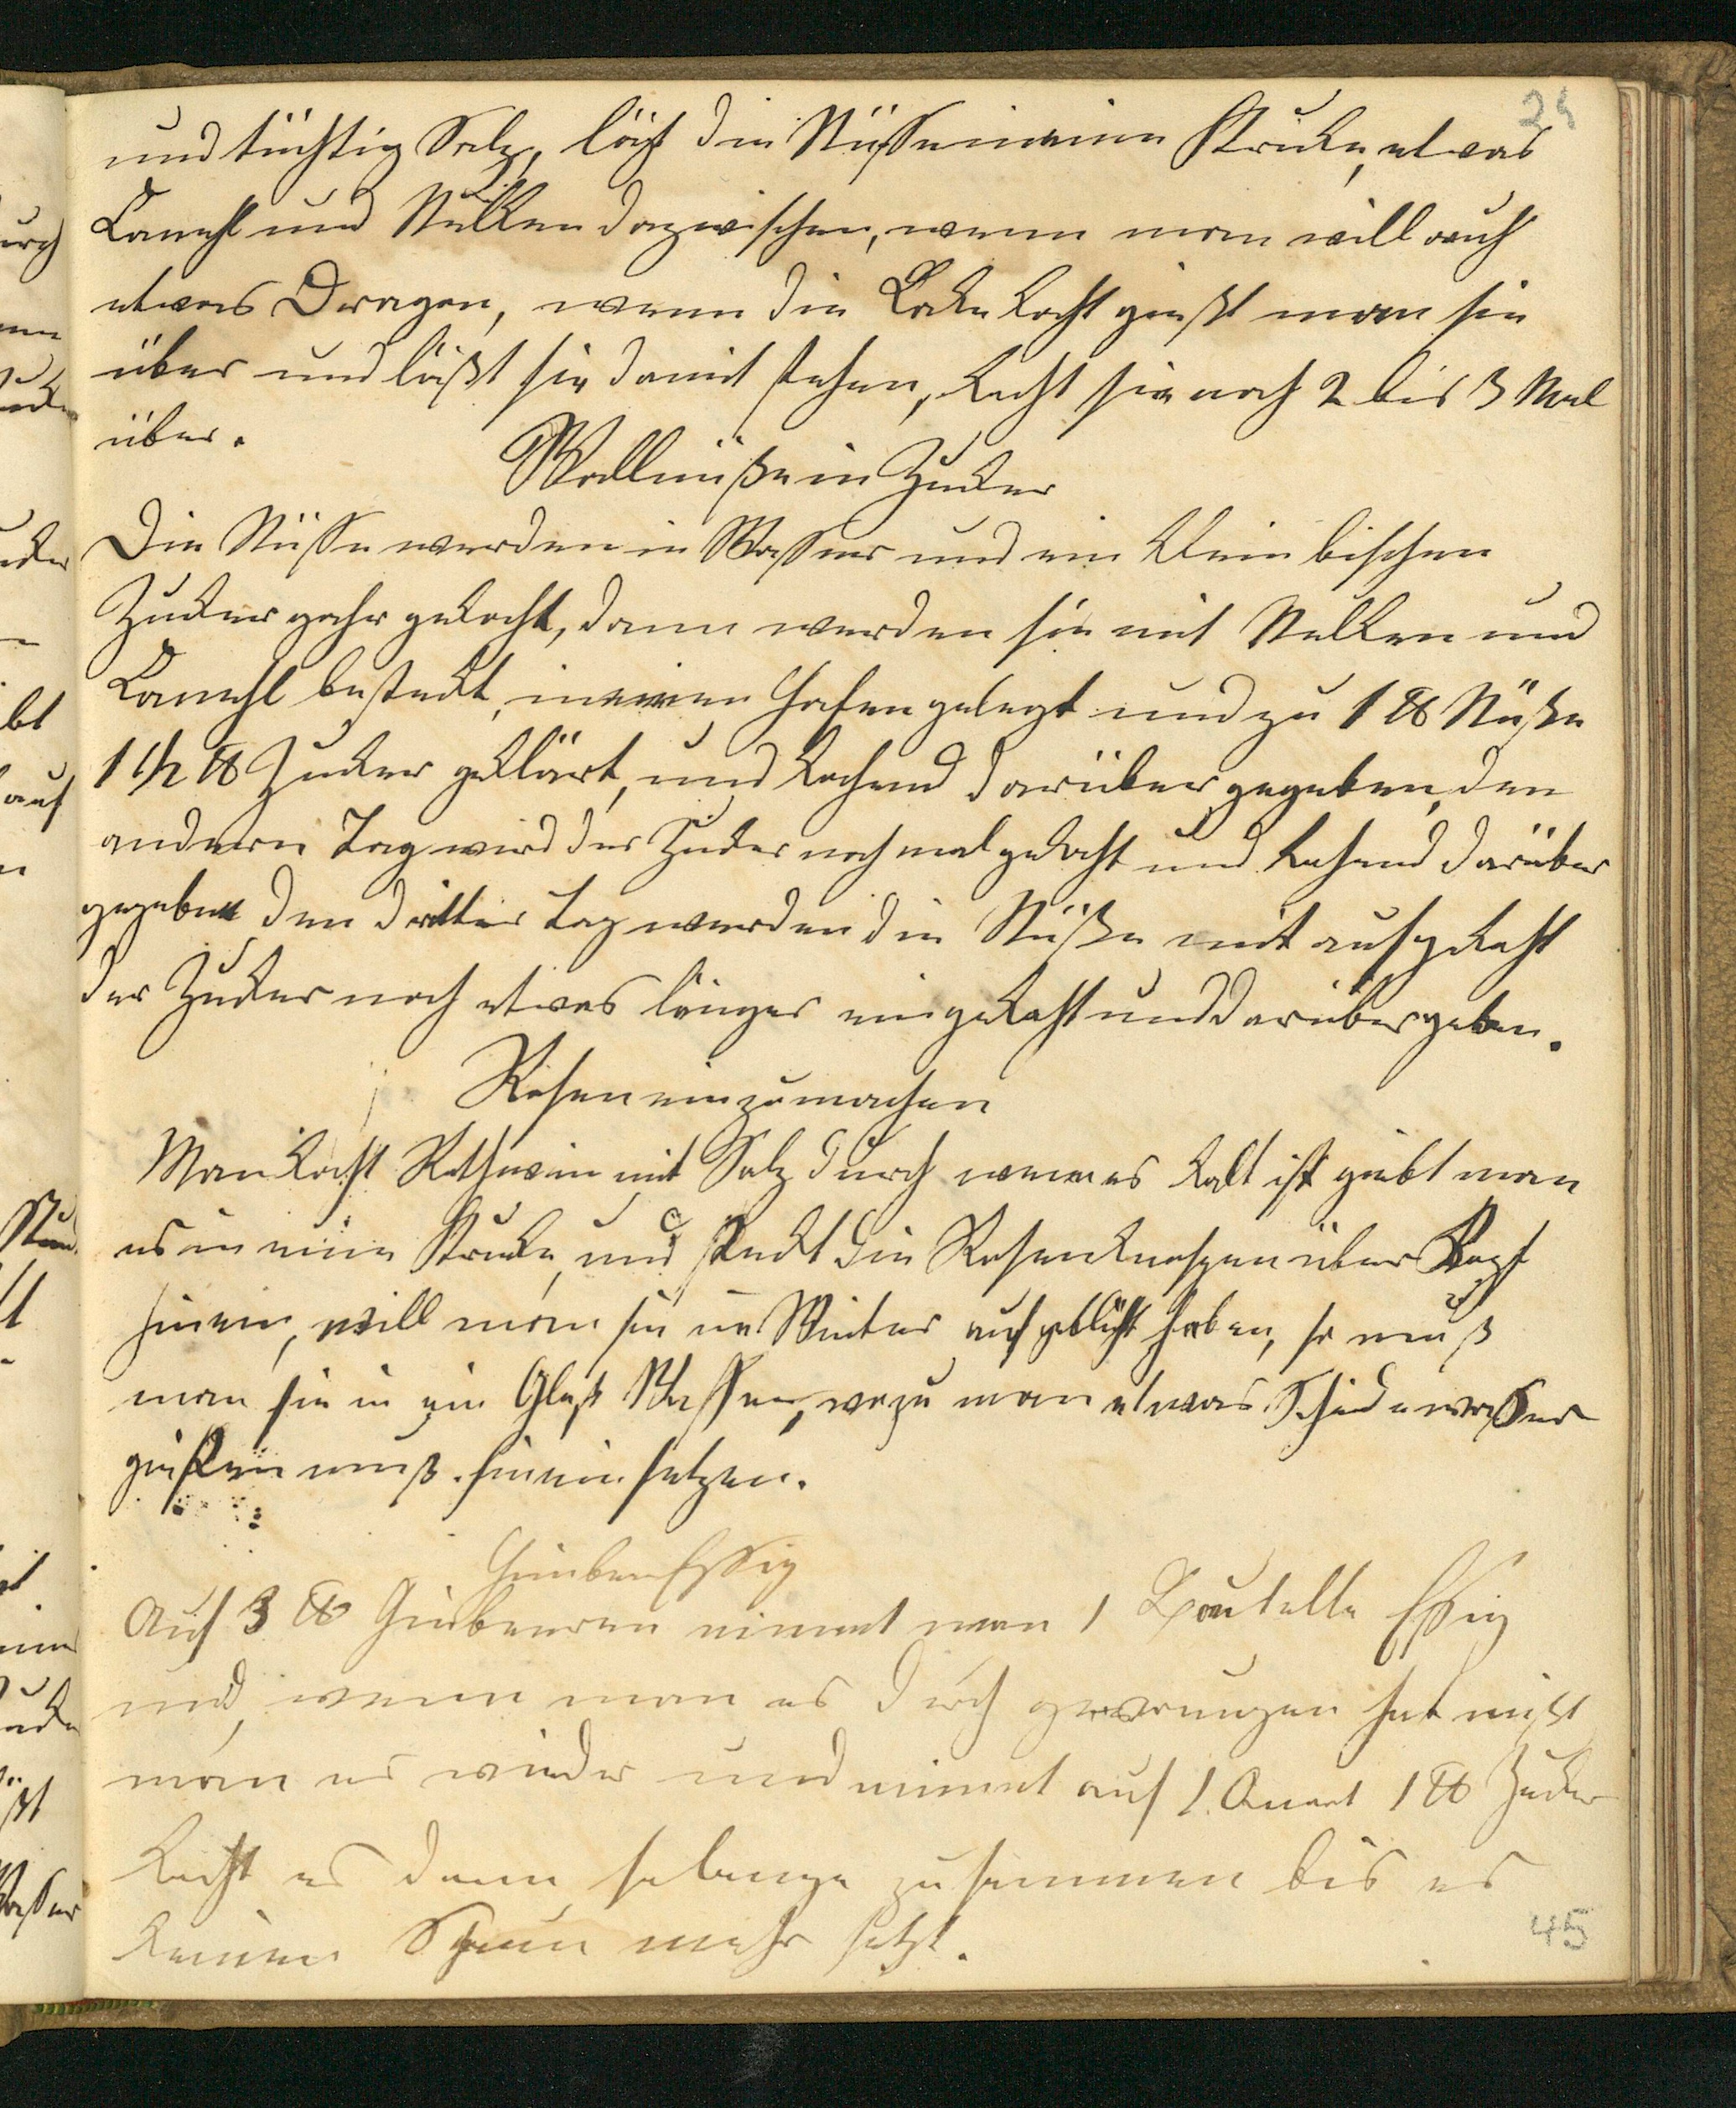 24
und tüchtig Salz, legt die Nüsse in eine Kruke, etwas
Canehl und Nelken dazwischen, wenn man will auch
etwas Dragon, wenn die Lake kocht gießt man sie
über und läßt sie damit stehen, kocht sie noch 2 bis 3 Mal
über.
Wallnüße in Zucker
Die Nüsse werden in Wasser und ein klein bischen
Zucker gahr gekocht, dann werden sie mit Nelken und
Canehl besteckt, in einen Hafen gelegt und zu 1 ℔ Nüße
1 1/2 ℔ Zucker geklärt, und kochend darüber gegeben, den
andern Tag wird der Zucker noch mal gekocht und kochend darüber
gegeben den dritten Tag werden die Nüße mit aufgekocht
der Zucker noch etwas länger eingekocht und darüber geben.
Rosen einzumachen
Man kocht Rothwein mit Salz durch wenn es kalt ist giebt man
es in eine Kruke, und steckt die Rosenknospen über Kopf
hinein, will man sie im Winter aufgeblüht haben, so muß
man sie in ein Glaß Wasser, wozu man etwas Scheidewasser
gießen muß hinein setzen.
Himbeer Essig
Auf 3 ℔ Himbeeren nimmt man 1 Boutelle Essig
und wenn man es durch gewrungen hat mißt
man es wieder und nimmt auf 1 Quart 1 ℔ Zucker
kocht es dann so lange zusammen bis es
keinen Schaum mehr setzt.
45